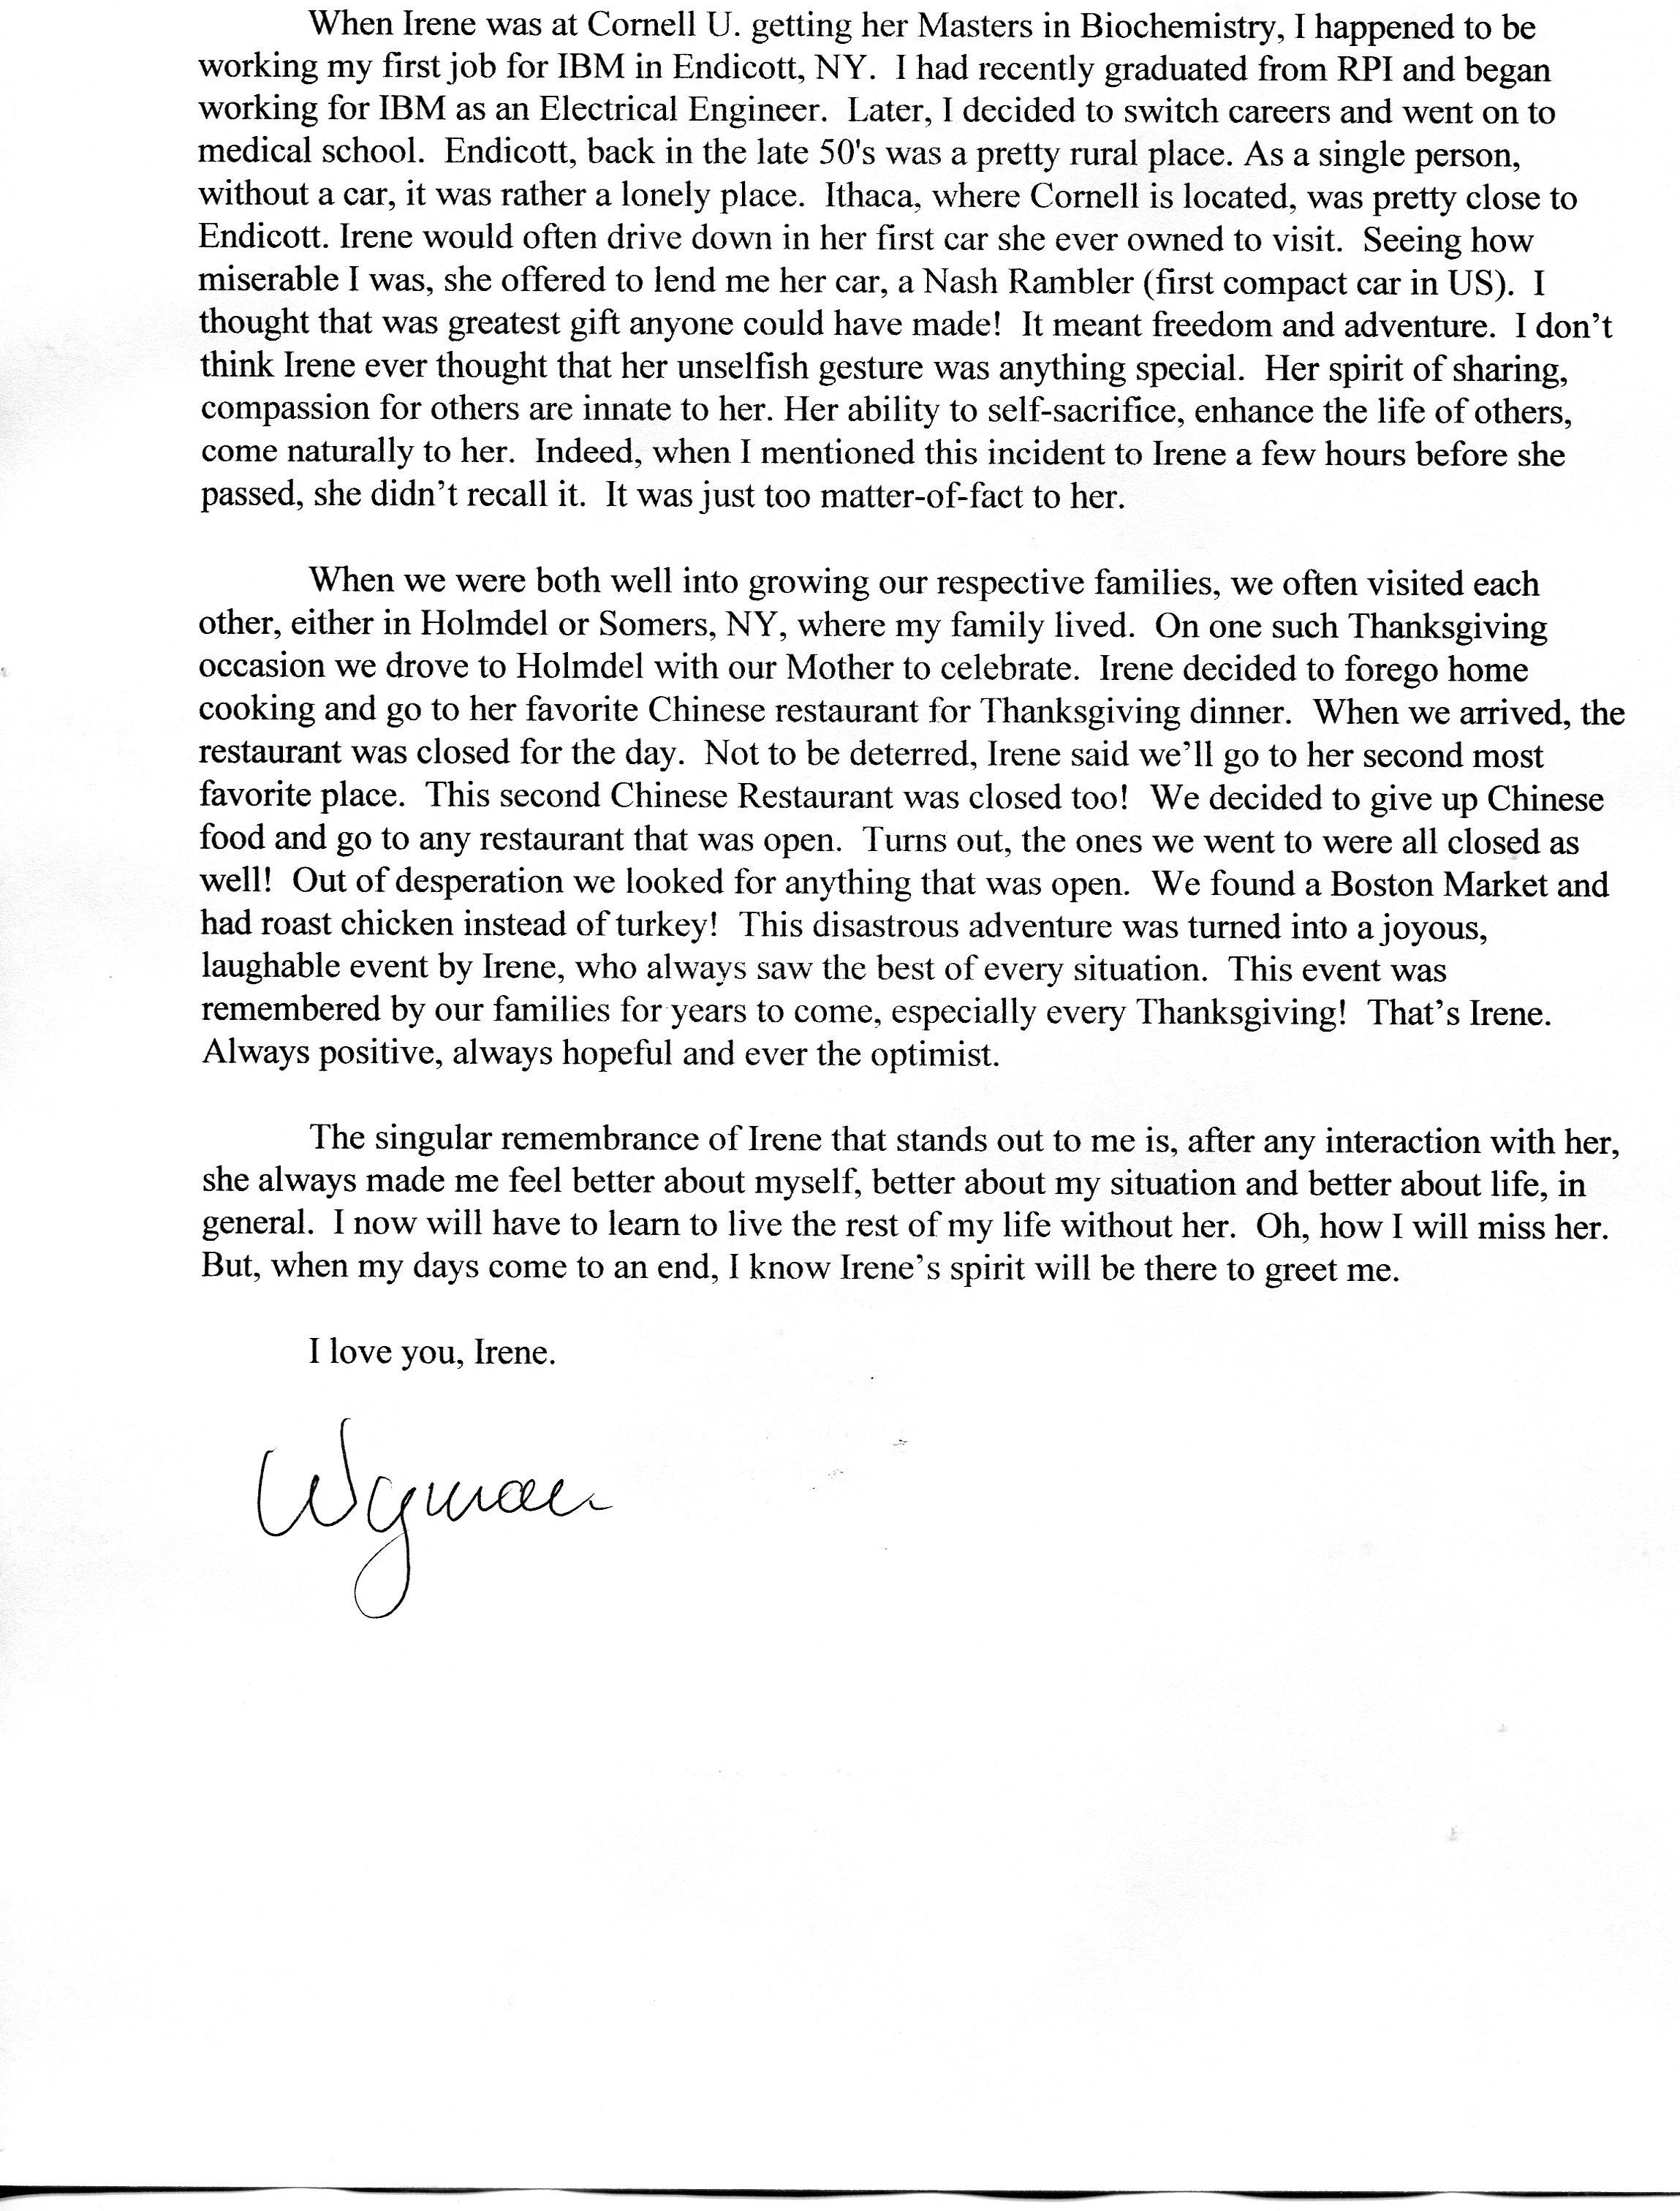 When Irene was at Cornell U. getting her Masters in Biochemistry, I happened to be
working my first job for IBM in Endicott, NY.  I had recently graduated from RPI and began
working for IBM as an Electrical Engineer.  Later, I decided to switch careers and went on to
medical school.  Endicott, back in the late 50's was a pretty rural place. As a single person,
without a car, it was rather a lonely place.  Ithaca, where Cornell is located, was pretty close to
Endicott. Irene would often drive down in her first car she ever owned to visit.  Seeing how
miserable I was, she offered to lend me her car, a Nash Rambler (first compact car in US).  I
thought that was greatest gift anyone could have made!  It meant freedom and adventure.  I don’t
think Irene ever thought that her unselfish gesture was anything special.  Her spirit of sharing,
compassion for others are innate to her. Her ability to self-sacrifice, enhance the life of others,
come naturally to her.  Indeed, when I mentioned this incident to Irene a few hours before she
passed, she didn’t recall it.  It was just too matter-of-fact to her.
When we were both well into growing our respective families, we often visited each
other, either in Holmdel or Somers, NY, where my family lived.  On one such Thanksgiving
occasion we drove to Holmdel with our Mother to celebrate.  Irene decided to forego home
cooking and go to her favorite Chinese restaurant for Thanksgiving dinner.  When we arrived, the
restaurant was closed for the day.  Not to be deterred, Irene said we’ll go to her second most
favorite place.  This second Chinese Restaurant was closed too!  We decided to give up Chinese
food and go to any restaurant that was open.  Turns out, the ones we went to were all closed as
well!  Out of desperation we looked for anything that was open.  We found a Boston Market and
had roast chicken instead of turkey!  This disastrous adventure was turned into a joyous,
laughable event by Irene, who always saw the best of every situation.  This event was
remembered by our families for years to come, especially every Thanksgiving!  That’s Irene.
Always positive, always hopeful and ever the optimist.
The singular remembrance of Irene that stands out to me is, after any interaction with her,
she always made me feel better about myself, better about my situation and better about life, in
general.  I now will have to learn to live the rest of my life without her.  Oh, how I will miss her.
But, when my days come to an end, I know Irene’s spirit will be there to greet me.
I love you, Irene.
Wyman